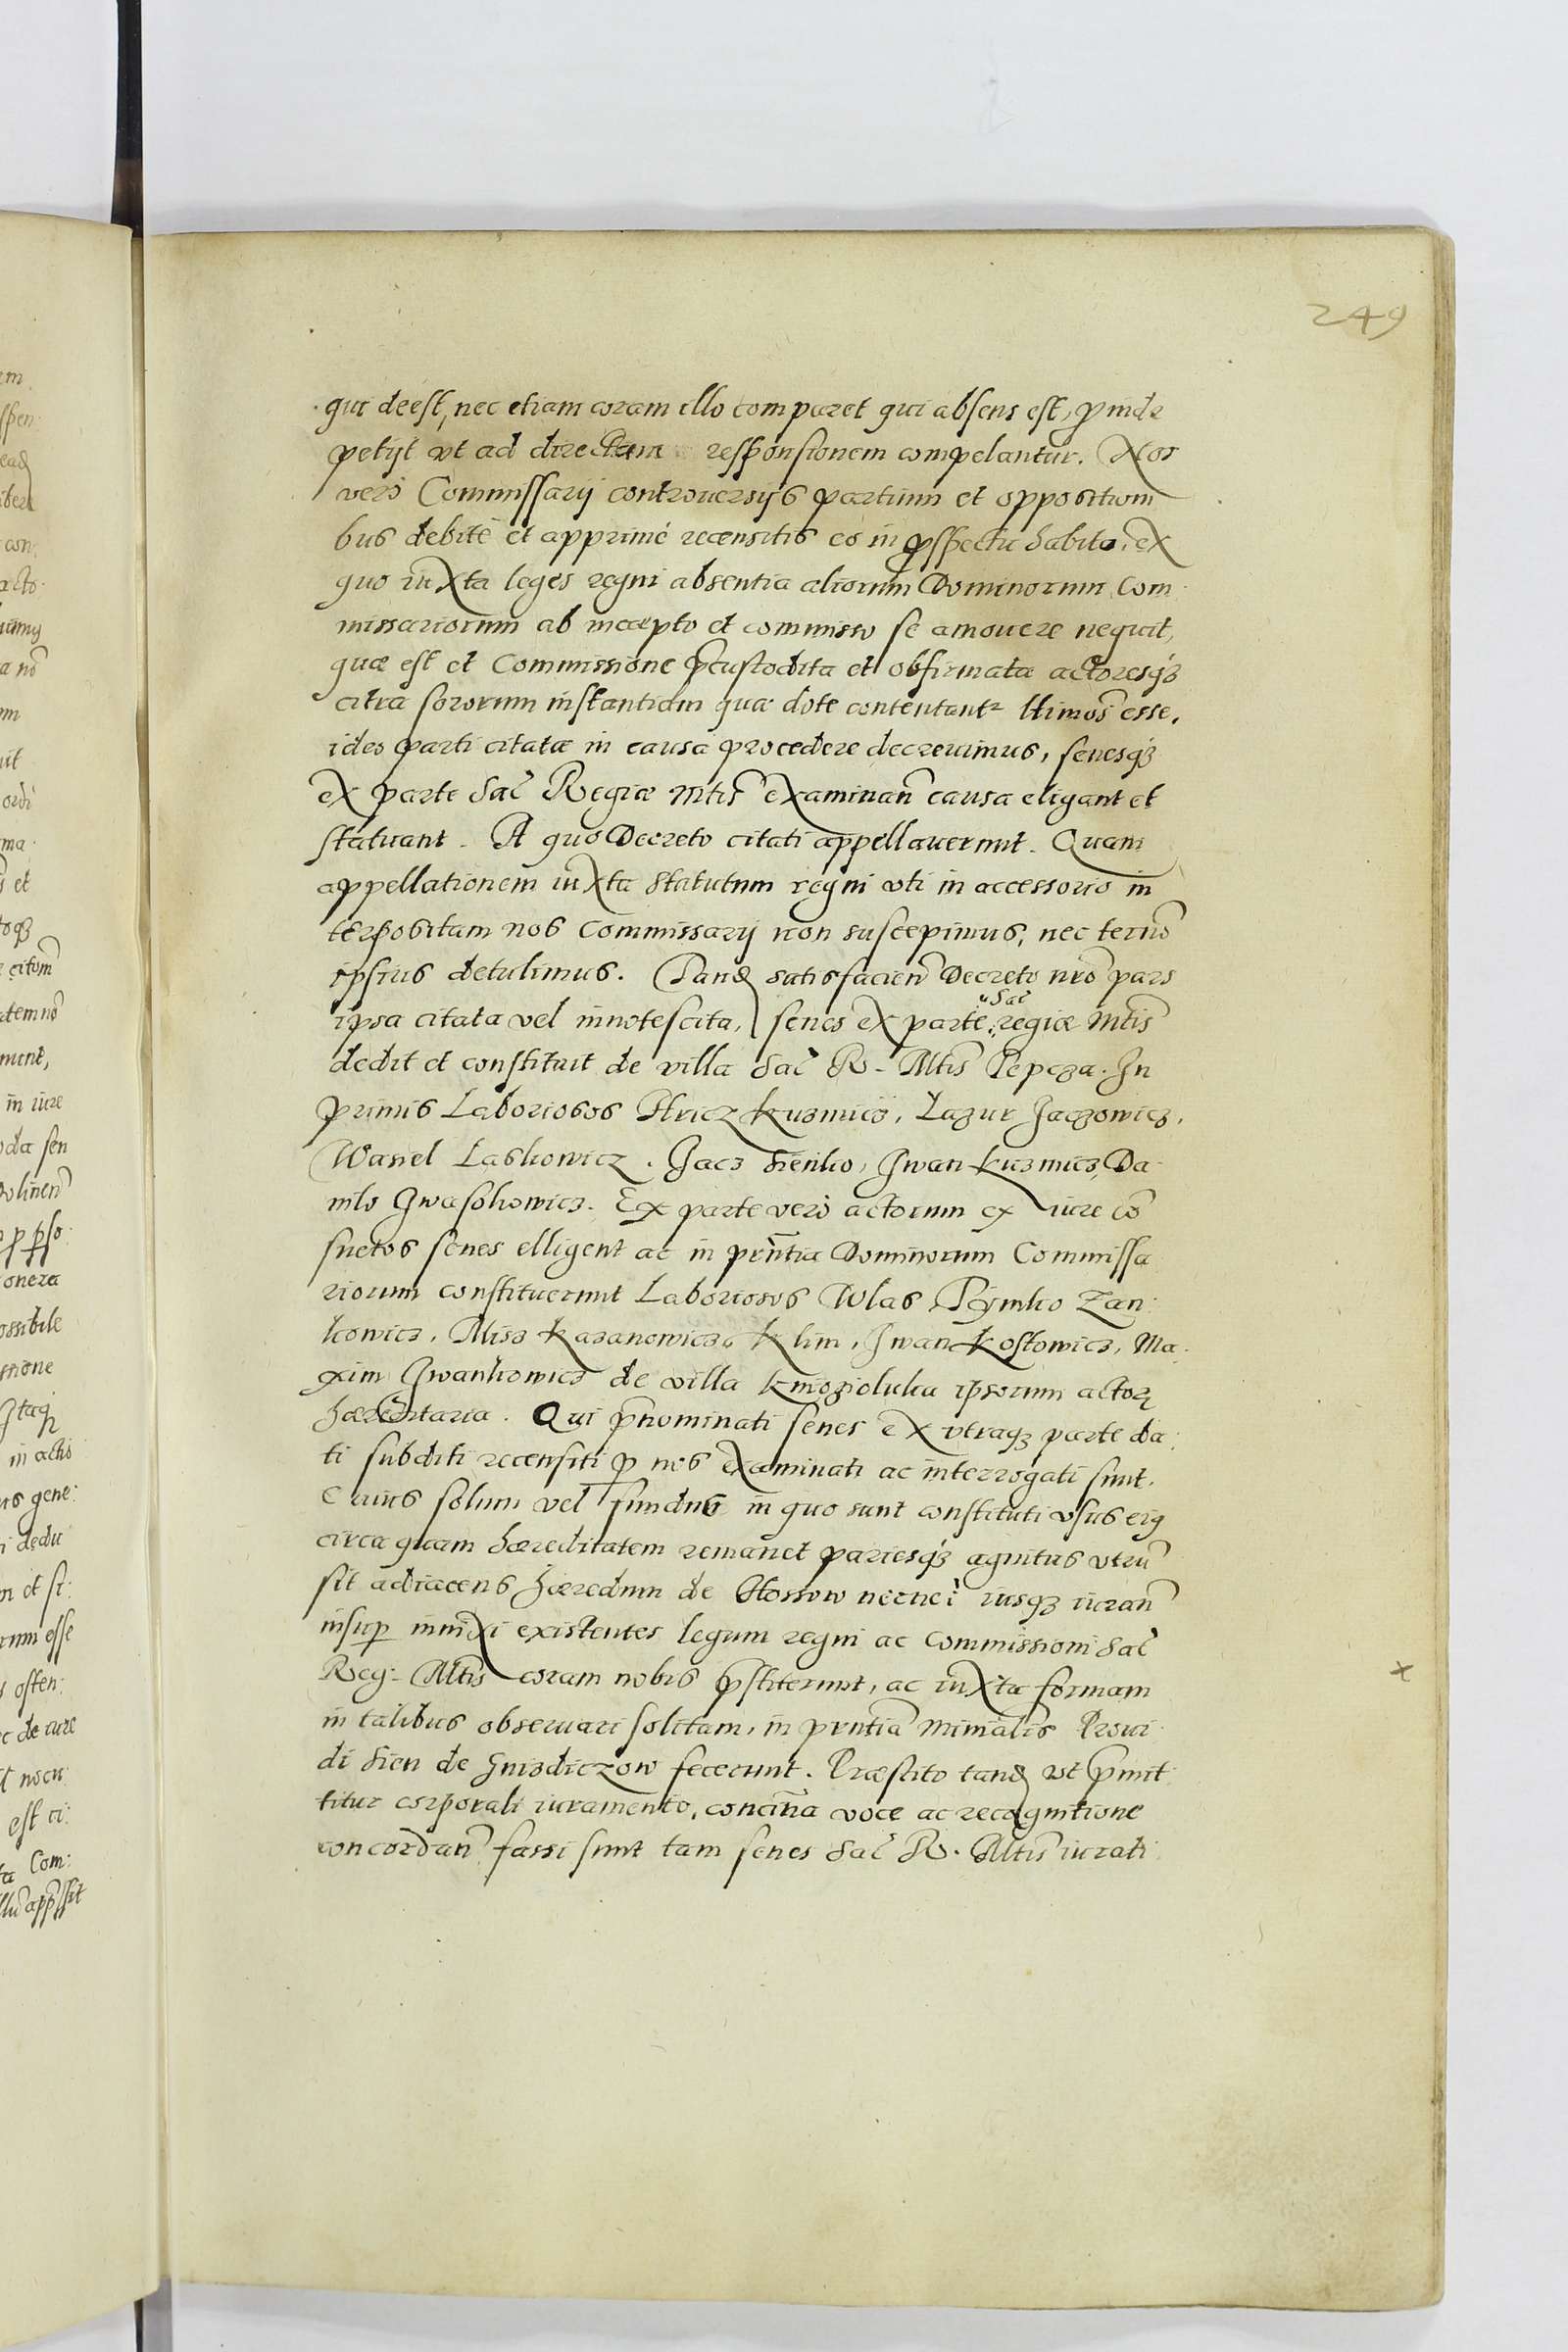 249
qui deest, nec etiam coram illo comparet qui absens est, ꝓinde
petijt vt ad directam responsionem compelantur. Nos
verò Commissarij controuersijs partium et oppositioni
bus debitè et apprimè recensitis eo in ꝓspectu habito, ex
quo iuxta leges regni absentia aliorum Dominorum Com
missariorum ab incoepto et commisso se amouere nequit,
quæ est et Commissione p̄custodita et obfirmata actoresq3
citra sororum instantiam quæ dote contentantr llimos esse,
ideo parti citatæ in causa procedere decreuimus, senesq3
ex parte Sac Regiæ Mtis examinan causa eligant et
statuant. A quo Decreto citati appellauerunt. Quam
appellationem iuxta Statutum regni vti in accessorio in
terpositam nos Commissarij non suscepimus, nec termō
ipsius detulimus. Tand satisfacien Decreto nro pars
ipsa citata vel innotescita, senes ex parte Sac regiæ Mtis
dedit et constituit de villa Sac R. Mtis Pepcza. In
primis Laboriosos Hricz Kuzmicz, Lazur Jaczowicz,
Wasiel Laskowicz. Jacz Sienko, Iwan Kuzmicz, Da
nilo Iwaskowicz. Ex parte verò actorum ex iure cō
suetos senes elligent ac in prntia Dominorum Commissa
riorum constituerunt Laboriosos Wlas, Pynko Zan:
kowicz, Misz Kazanowicz, Klim, Iwan Kostowicz, Ma
xim Iwankowicz de villa Kniazioluka ipsorum actorꝝ
hæreditaria. Qui p̄nominati senes ex vtraq3 parte da:
ti subditi recensiti ꝑ nos examinati ac interrogati sunt.
Cuius solum vel fundus in quo sunt constituti vsus eig
circa quam hæreditatem remanet pariesq3 agnitus vtrū
sit adiacens hæredum de Hossow necne? iusq3 iuran
insuꝑ innixi existentes legum regni ac Commissioni Sac
Reg. Mtis coram nobis p̄stiterunt, ac iuxta formam
in talibus obseruari solitam, in prntia Minialis Proui
di Sien de Hnizdiczow fecerunt. Præstito tand vt p̄mit
titur corporali iuramento, concinna voce ac recognitione
concordan fassi sunt tam senes Sac R. Mtis iurati